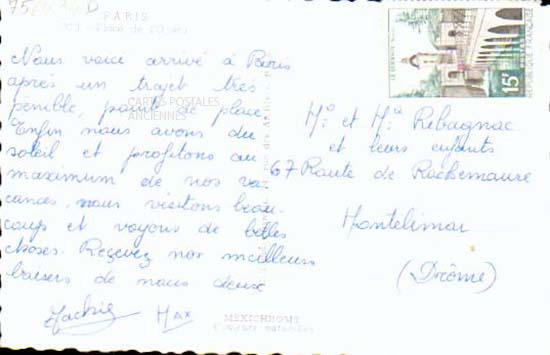 PARIS
Place de l'Opéra
Nous voici arrivé à Paris
après un trajet très
pénible, point de place.
Enfin nous avons du
soleil et profitons au
maximum de nos va-
cances, nous visitons beau-
coup et voyons de belles
choses. Recevez nos meilleurs
baisers de nous deux
Jackie Max
CARTES POSTALES
ANCIENNES
15F
REPUBLIQUE FRANÇAISE
Mr et Mme Rebagnac
et leurs enfants
67 Route de Rochemaure
Montelimar
(Drôme)
MEXICHROME